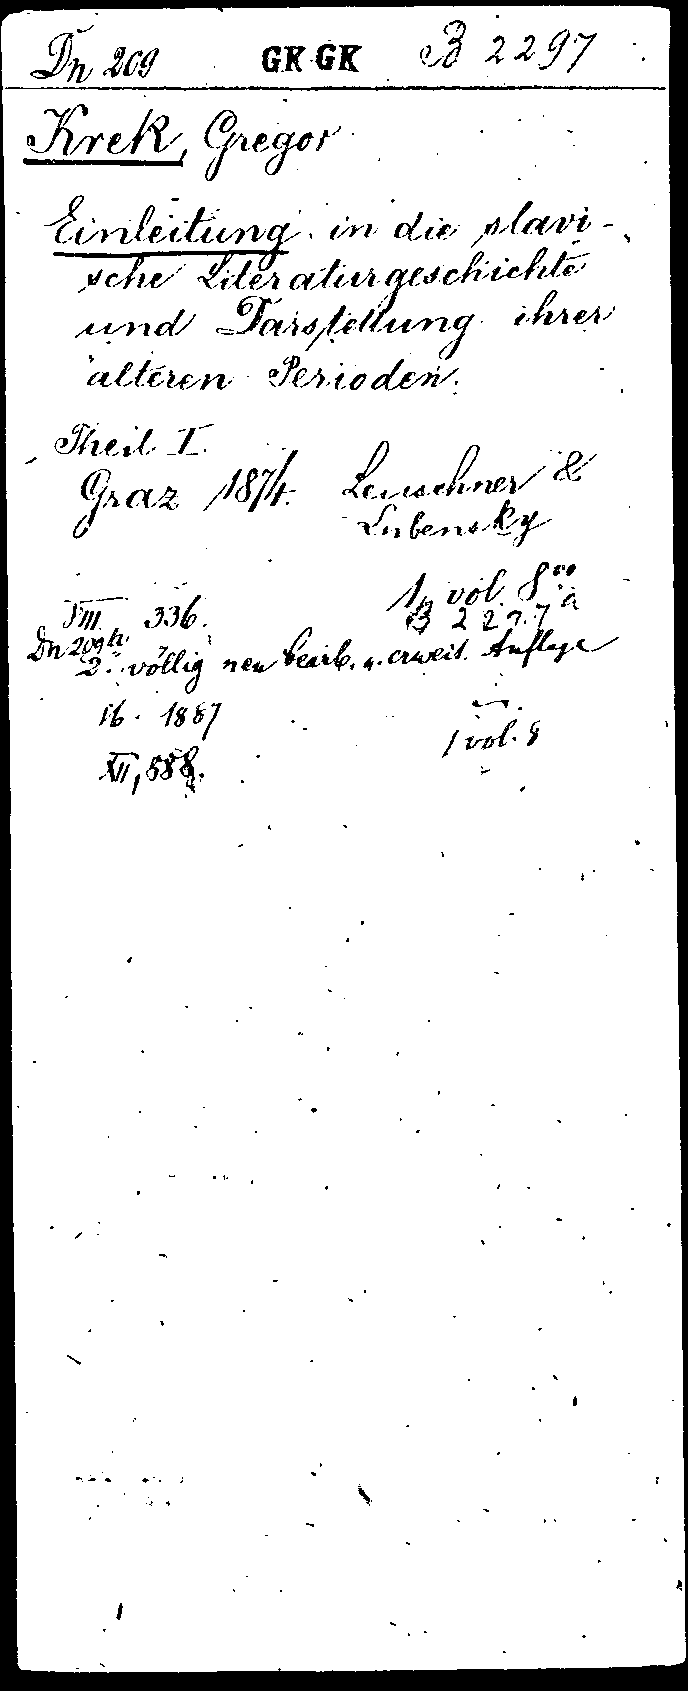 Dn 209 GK GK B 2297
Krek, Gregor
Einleitung in die slavi-
sche Literaturgeschichte
und Darstellung ihrer
älteren Perioden.
Theil I.
Graz 1874. Leuschner &
Lubensky
VIII 336. 1 vol. 8vo
B 2297a
Dn 209h
2. völlig neu bearb. u. erweit. Auflage
ib. 1887
1 vol. 8
XII, 888.